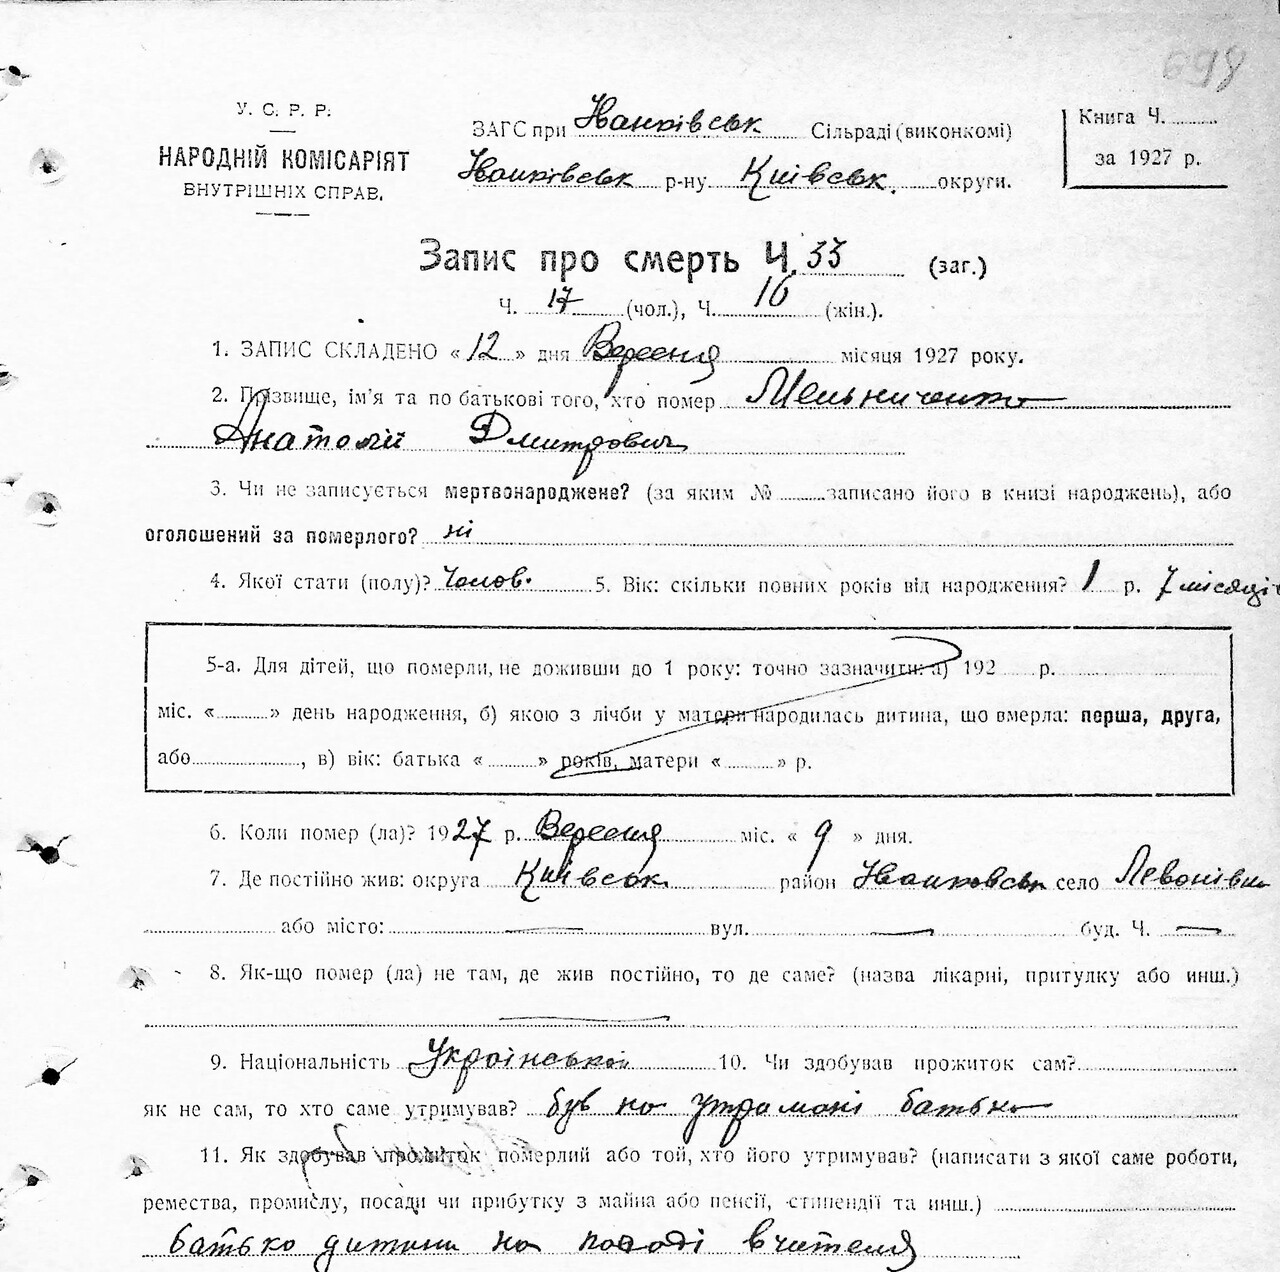 698
У. С. Р. Р.
НАРОДНІЙ КОМІСАРІЯТ
ВНУТРІШНІХ СПРАВ.
ЗАГС при Іванківськ Сільраді (виконкомі)
Іванківськ р-ну Київськ. округи.
Книга Ч.
за 1927 р.
Запис про смерть Ч. 33 (заг.)
Ч. 17 (чол.), Ч. 16 (жін.).
1. ЗАПИС СКЛАДЕНО « 12 » дня Вересня місяця 1927 року.
2. Прізвище, ім'я та по батькові того, хто помер Мельниченко
Анатолій Дмитрович
3. Чи не записується мертвонароджене? (за яким № записано його в книзі народжень), або
оголошений за померлого? ні
4. Якої стати (полу)? Чолов. 5. Вік: скільки повних років від народження? 1 р. 7 місяців
5-а. Для дітей, що померли, не доживши до 1 року: точно зазначити: а) 192 р.
міс. « » день народження, б) якою з лічби у матери народилась дитина, що вмерла: перша, друга,
або , в) вік: батька « » років, матери « » р.
6. Коли помер (ла)? 1927 р. Вересня міс. « 9 » дня.
7. Де постійно жив: округа Київськ район Іванковськ село Левонівка
або місто: — вул. — буд. Ч. —
8. Як-що помер (ла) не там, де жив постійно, то де саме? (назва лікарні, притулку або инш.)
—
9. Національність Української 10. Чи здобував прожиток сам?
як не сам, то хто саме утримував? був на утримані батька
11. Як здобував прожиток померлий або той, хто його утримував? (написати з якої саме роботи,
ремества, промислу, посади чи прибутку з майна або пенсії, стипендії та инш.)
батько дитини на посаді вчителя